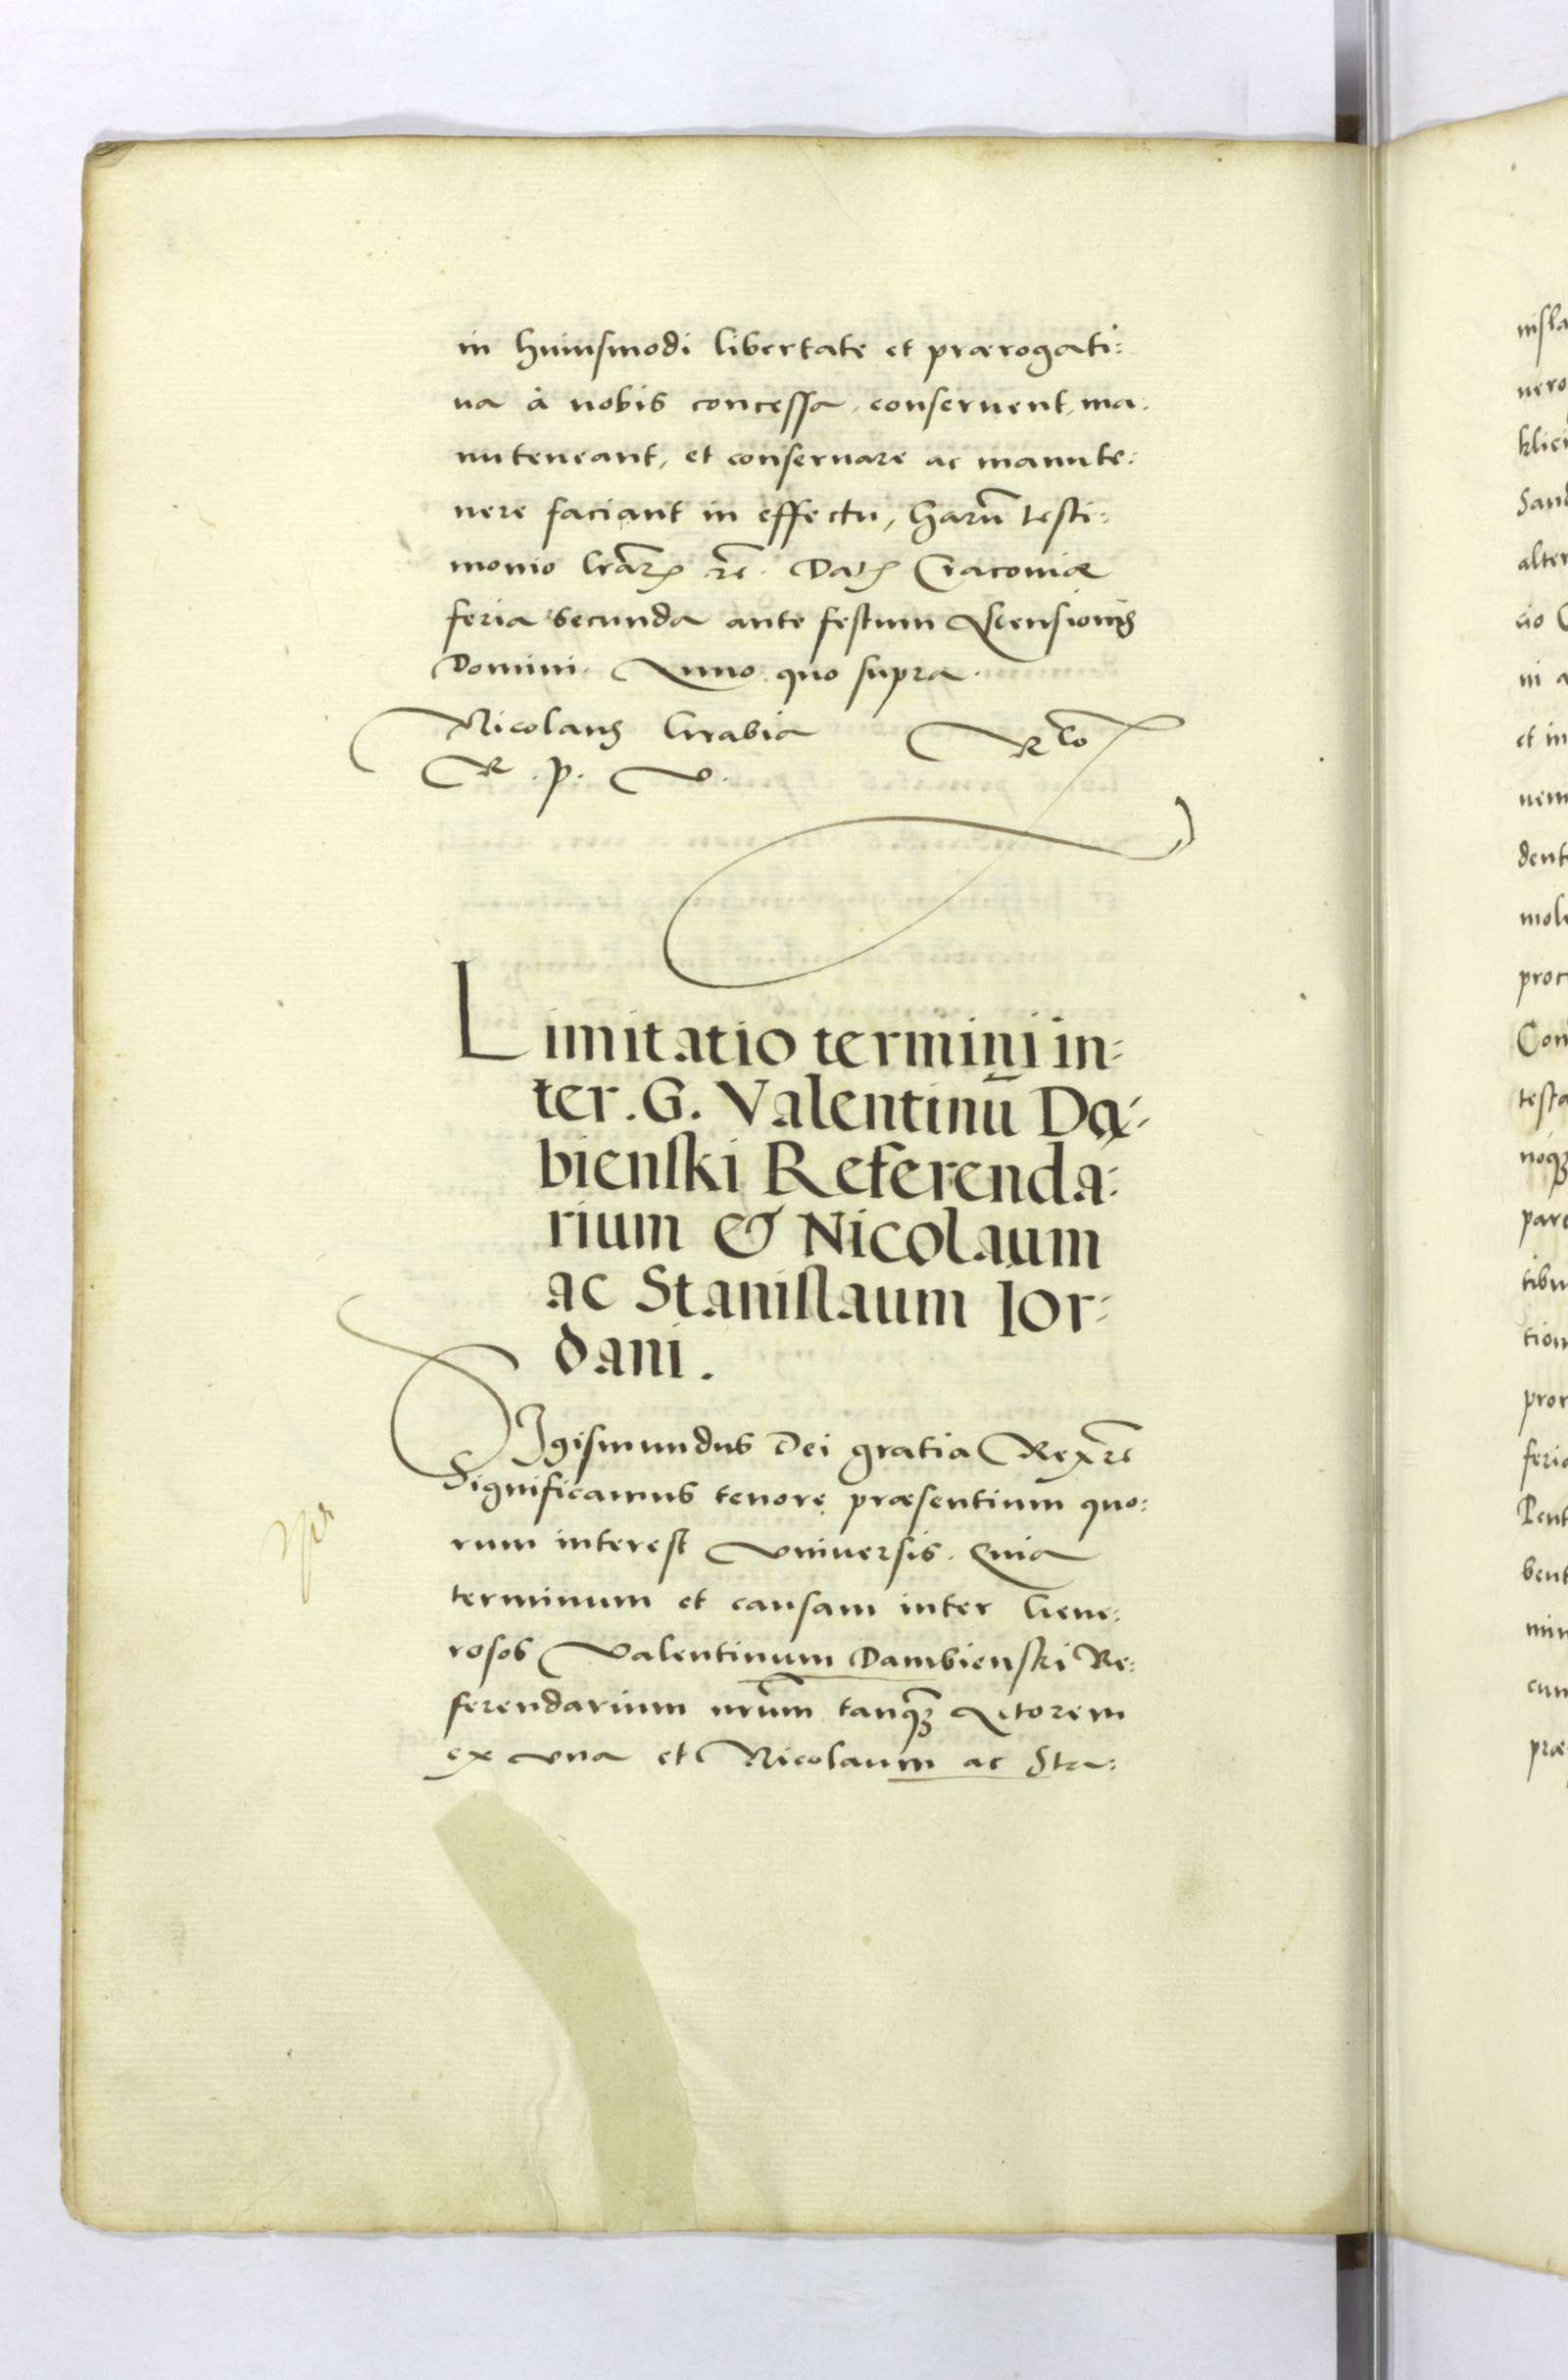 in huiusmodi libertate et prærogati:
ua à nobis concessa, conseruent, ma:
nuteneant, et conseruare ac manute:
nere faciant in effectu, harũ testi:
monio lr̃arꝝ ꝛc̃. Datꝭ Cracoviæ
feria secunda ante festum Ascensionis
Domini. Anno quo supra.
Nicolaus Grabia
R. P. V.
Limitatio termini in:
ter .G. Valentinũ Dą:
bienſki Referenda:
rium & Nicolaum
ac Staniſlaum Ior:
dani.
SIgismundus Dei gratia Rex ꝛc̃
Significamus tenore præsentium quo:
rum interest Vniuersis. Quia
terminum et causam inter Gene:
rosos Valentinum Dambienski Re:
ferendarium nr̃um tanqꝫ Actorem
ex vna et Nicolaum ac Sta:
nisla
uero
klici
Sand
alter
cio C
ni a
et in
nem
dent
mole
proc
Con
testa
noqꝫ
pare
tibu
tion
pror
feria
Pent
bent
min
cum
præ